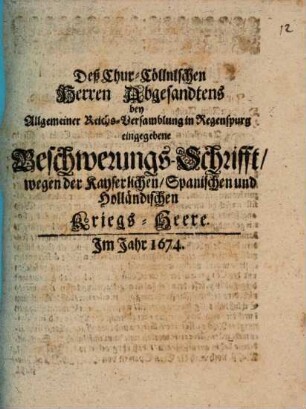 12
Deß Chur-Cöllnischen
Herren Abgesandtens
bey
Allgemeiner Reichs-Versamblung in Regenspurg
eingegebene
Beschwerungs-Schrifft/
wegen der Kayserlichen/Spanischen und
Holländischen
Kriegs-Heere.
Im Jahr 1674.